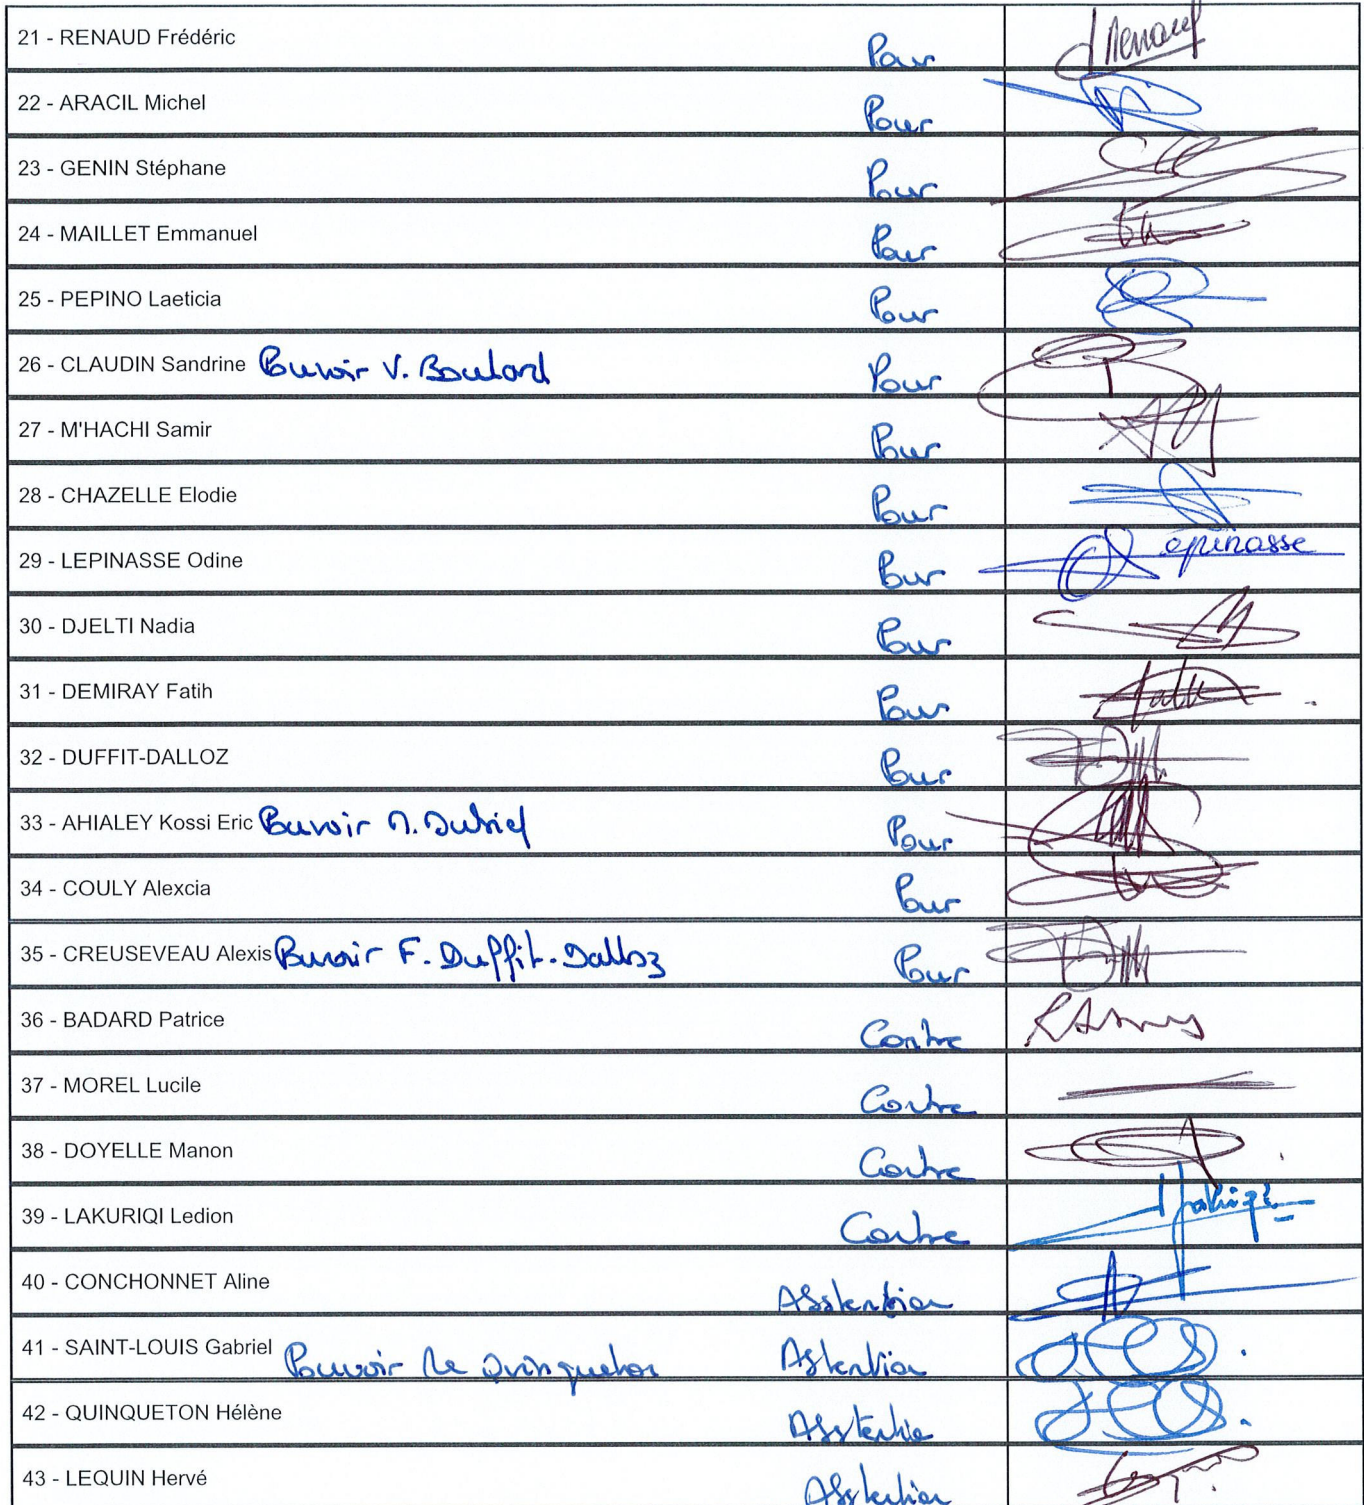 21 - RENAUD Frédéric Pour
22 - ARACIL Michel Pour
23 - GENIN Stéphane Pour
24 - MAILLET Emmanuel Pour
25 - PEPINO Laeticia Pour
26 - CLAUDIN Sandrine Pouvoir V. Boulard Pour
27 - M'HACHI Samir Pour
28 - CHAZELLE Elodie Pour
29 - LEPINASSE Odine Pour epinasse
30 - DJELTI Nadia Pour
31 - DEMIRAY Fatih Pour
32 - DUFFIT-DALLOZ Pour
33 - AHIALEY Kossi Eric Pouvoir Pour
34 - COULY Alexcia Pour
35 - CREUSEVEAU Alexis Pouvoir F. Duffit-Dalloz Pour
36 - BADARD Patrice Contre
37 - MOREL Lucile Contre
38 - DOYELLE Manon Contre
39 - LAKURIQI Ledion Contre
40 - CONCHONNET Aline Abstention
41 - SAINT-LOUIS Gabriel Pouvoir Quinqueton Abstention
42 - QUINQUETON Hélène Abstention
43 - LEQUIN Hervé Abstention